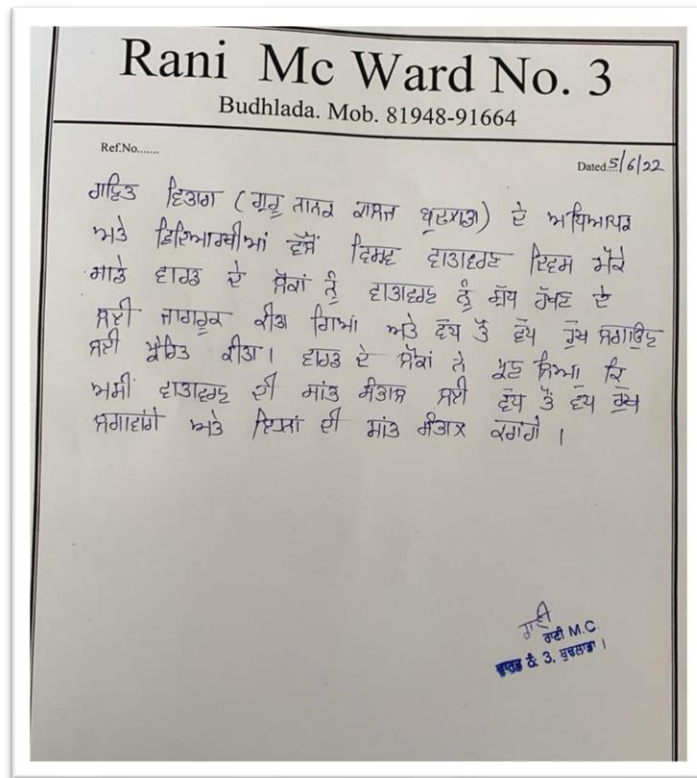 Rani Mc Ward No. 3
Budhlada. Mob. 81948-91664
Ref.No.......
Dated..5/6/22
ਗਣਿਤ ਵਿਭਾਗ (ਗੁਰੂ ਨਾਨਕ ਕਾਲਜ ਬੁਢਲਾਡਾ) ਦੇ ਅਧਿਆਪਕ
ਅਤੇ ਵਿਦਿਆਰਥੀਆਂ ਵੱਲੋਂ ਵਿਸ਼ਵ ਵਾਤਾਵਰਣ ਦਿਵਸ ਮੌਕੇ
ਸਾਡੇ ਵਾਰਡ ਦੇ ਲੋਕਾਂ ਨੂੰ ਵਾਤਾਵਰਣ ਨੂੰ ਸ਼ੁੱਧ ਰੱਖਣ ਦੇ
ਲਈ ਜਾਗਰੂਕ ਕੀਤਾ ਗਿਆ ਅਤੇ ਵੱਧ ਤੋਂ ਵੱਧ ਰੁੱਖ ਲਗਾਉਣ
ਲਈ ਪ੍ਰੇਰਿਤ ਕੀਤਾ। ਵਾਰਡ ਦੇ ਲੋਕਾਂ ਨੇ ਪ੍ਰਣ ਲਿਆ ਕਿ
ਅਸੀਂ ਵਾਤਾਵਰਣ ਦੀ ਸਾਂਭ ਸੰਭਾਲ ਲਈ ਵੱਧ ਤੋਂ ਵੱਧ ਰੁੱਖ
ਲਗਾਵਾਂਗੇ ਅਤੇ ਇਹਨਾਂ ਦੀ ਸਾਂਭ ਸੰਭਾਲ ਕਰਾਂਗੇ।
ਰਾਣੀ
ਰਾਣੀ M.C.
ਵਾਰਡ ਨੰ 3, ਬੁਢਲਾਡਾ।